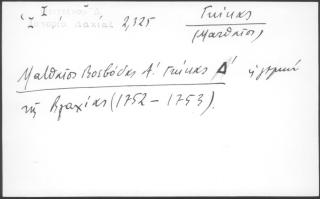 Γκίκας
Ἱστορία Δακίας 2,325
(Ματθαῖος)
Ματθαῖος Βοεβόδας Α΄ Γκίκας Δ΄ ἡγεμών
τῆς Βλαχίας (1752 – 1753).